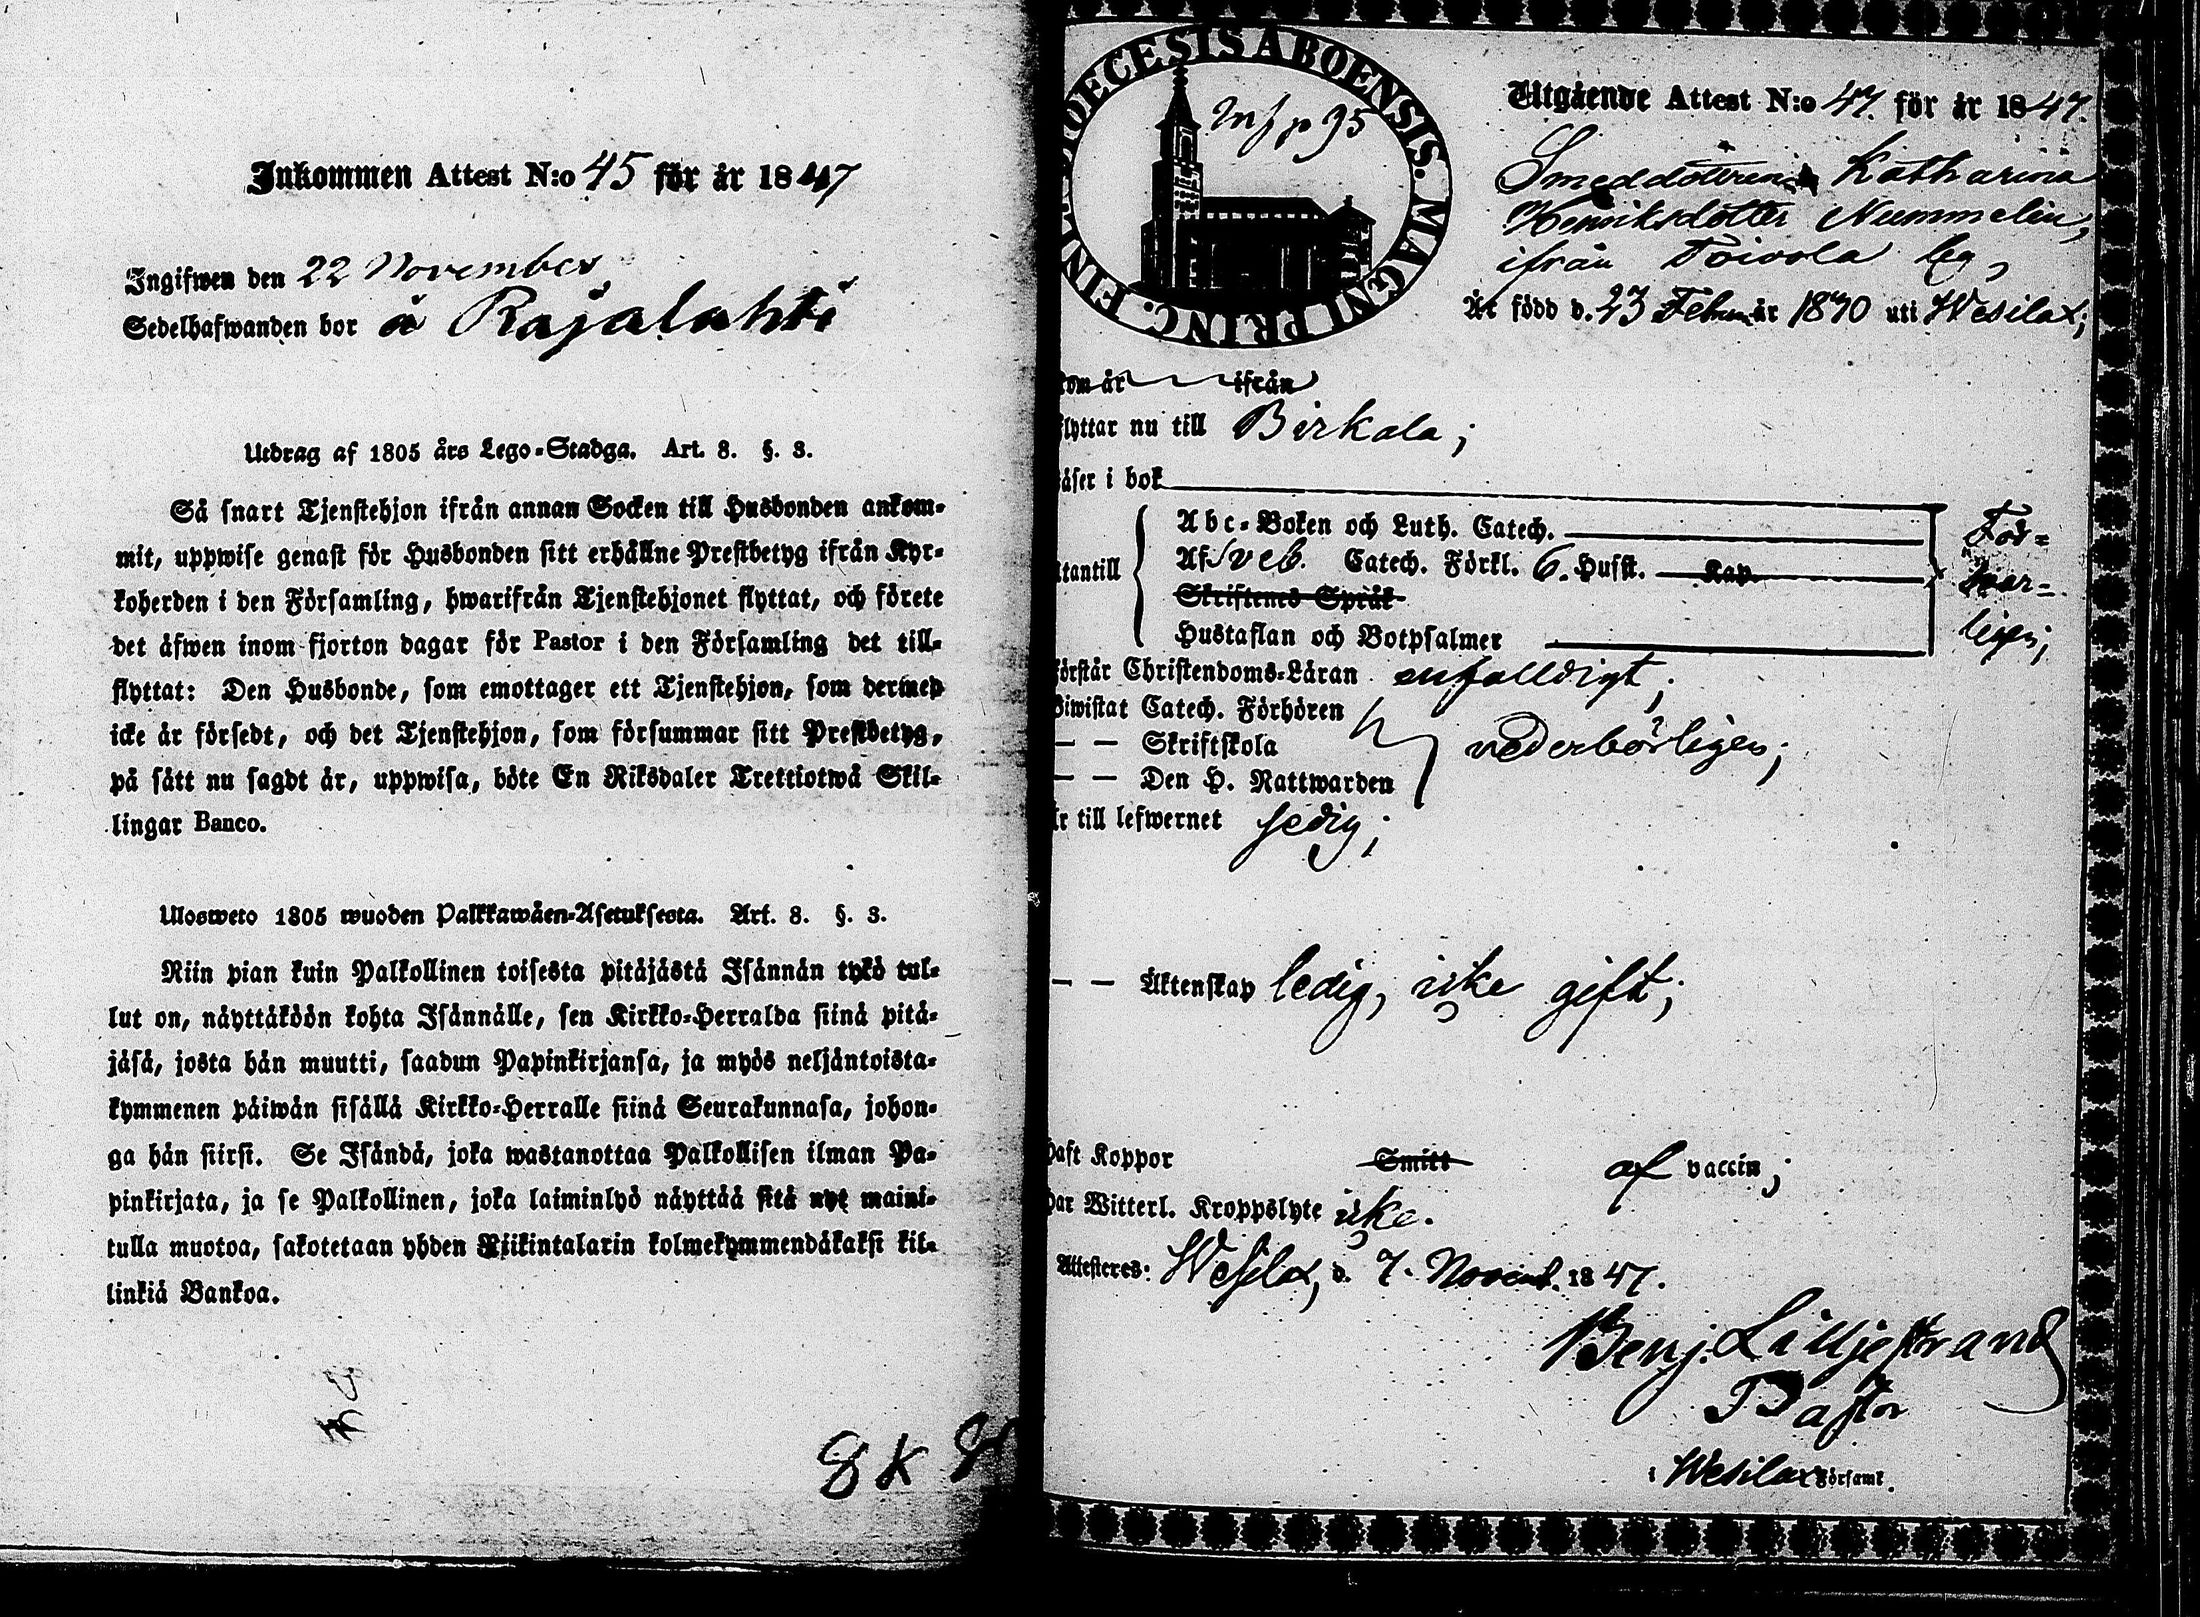 Inkommen Attest N:o 45 för år 1847
Ingifwen den 22 November
Sedelhafwanden bor å Rajalahti
Utdrag af 1805 års Lego-Stadga. Art. 8. §. 3.
Så snart Tjenstehjon ifrån annan Socken till Husbonden ankom-
mit, uppwise genast för Husbonden sitt erhållne Prestbetyg ifrån Kyr-
koherden i den Församling, hwarifrån Tjenstehjonet flyttat, och förete
det äfwen inom fjorton dagar för Pastor i den Församling det till-
flyttat: Den Husbonde, som emottager ett Tjenstehjon, som dermed
icke är försedt, och det Tjenstehjon, som försummar sitt Prestbetyg,
på sätt nu sagdt är, uppwisa, böte En Riksdaler Trettiotwå Skil-
lingar Banco.
Ulosweto 1805 wuoden Palkkawäen-Asetuksesta. Art. 8. §. 3.
Niin pian kuin Palkollinen toisesta pitäjästä Isännän tykö tul-
lut on, näyttäköön kohta Isännälle, sen Kirkko-Herralda siinä pitä-
jäsä, josta hän muutti, saadun Papinkirjansa, ja myös neljäntoista-
kymmenen päiwän sisällä Kirkko-Herralle siinä Seurakunnasa, johon-
ga hän siirsi. Se Isändä, joka wastanottaa Palkollisen ilman Pa-
pinkirjata, ja se Palkollinen, joka laiminlyö näyttää sitä nyt maini-
tulla muotoa, sakotetaan yhden Riikintalarin kolmekymmendäkaksi kil-
linkiä Bankoa.
8 K 8
DIOECESIS ABOENSIS. MAGNI PRINC. FINL.
p 95
Utgående Attest N:o 47. för år 1847.
Smeddottren Katharina
Henriksdotter Nummelin,
ifrån Toivola by,
Är född d. 23 Febru år 1830 uti Wesilax;
kom år ifrån
flyttar nu till Birkala;
läser i bok
Utantill
Abc-Boken och Luth. Catech.
Af Sveb. Catech. Förkl. 6. Husst. Kap.
Skriftenes Språk
Hustaflan och Botpsalmer
För-
svar-
ligen;
förstår Christendoms-Läran enfalldigt;
Biwistat Catech. Förhören
— — Skriftskola
— — Den H. Nattwarden
vederbörligen;
är till lefwernet sedig;
— — Äktenskap ledig, icke gift;
haft Koppor Smitt af vaccin;
har Witterl. Kroppslyte icke.
Attesteres: Wesilax, d. 7. Novemb. 1847.
Benj. Lilljestrand
Pastor
i Wesilax Församl.